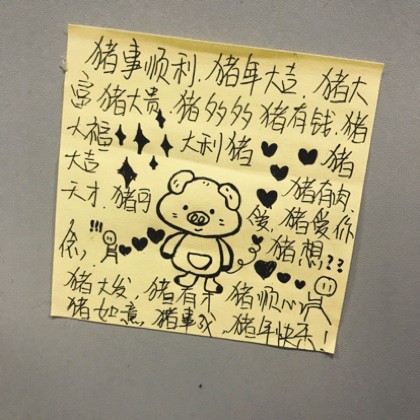 猪事顺利. 猪年大吉. 猪大
富猪大贵. 猪多多猪有钱. 猪
大福 大利猪 猪
大吉 猪有肉.
天才. 猪可
爱. 猪爱你
你, !!! 猪想??
猪大发. 猪有才 猪顺心
猪如意. 猪事 猪年快乐!